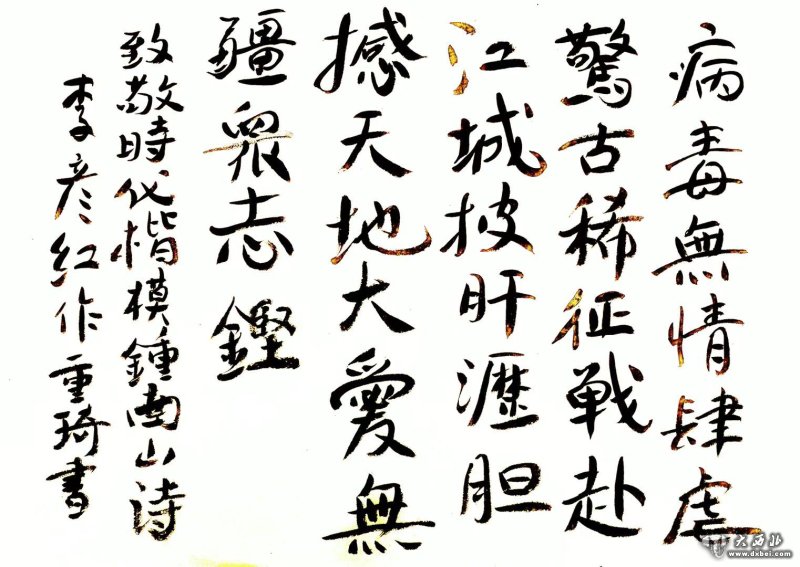 病毒無情肆虐
驚古稀征戰赴
江城披肝瀝胆
撼天地大愛無
疆眾志鏗
致敬時代楷模鍾南山诗
李彦红作重琦書
大西北
www.dxbei.com